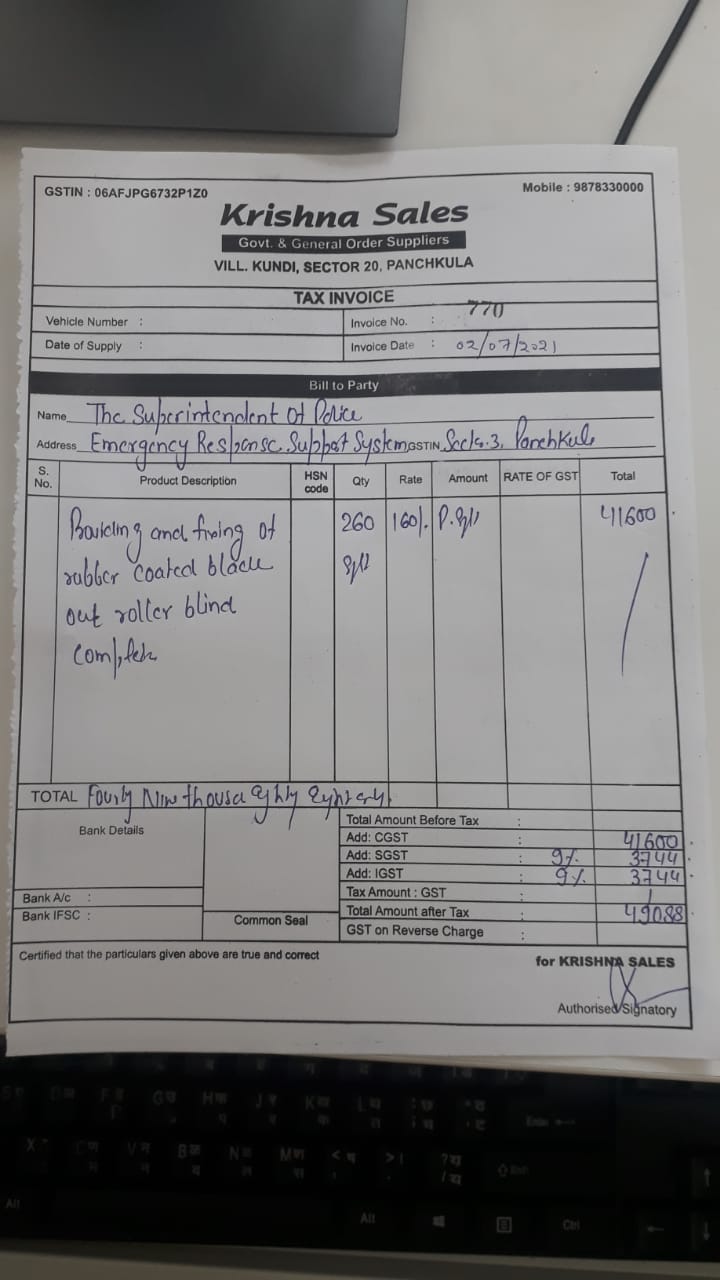 GSTIN : 06AFJPG6732P1Z0
Mobile : 9878330000
Krishna Sales
Govt. & General Order Suppliers
VILL. KUNDI, SECTOR 20, PANCHKULA
TAX INVOICE
Vehicle Number :
Invoice No. : 770
Date of Supply :
Invoice Date : 02/07/2021
Bill to Party
Name The Superintendent Of Police
Address Emergency Response Support System GSTIN Sector.3, Panchkula
S. No. Product Description HSN code Qty Rate Amount RATE OF GST Total
and fixing of 260 160/. P. 41600
rubber coated black
out roller blind
complete
TOTAL Fourty Nine thousa Eighty
Bank Details
Total Amount Before Tax :
Add: CGST : 41600
Add: SGST : 9% 3744
Add: IGST : 9% 3744
Bank A/c :
Tax Amount : GST
Bank IFSC :
Common Seal
Total Amount after Tax : 49088
GST on Reverse Charge :
Certified that the particulars given above are true and correct
for KRISHNA SALES
Authorised Signatory
Enter
Shift
Alt
Alt
Ctrl